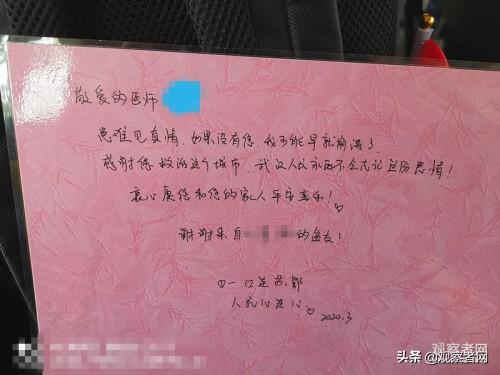 敬爱的医师
患难见真情,如果没有您,我可能早就崩溃了
感谢您救治这个城市,武汉人民永远不会忘记这份恩情!
衷心愿您和您的家人平安喜乐!♡
谢谢来自 的盆友!
♡一
人民
2020.3
头条 @观察者网
观察者网